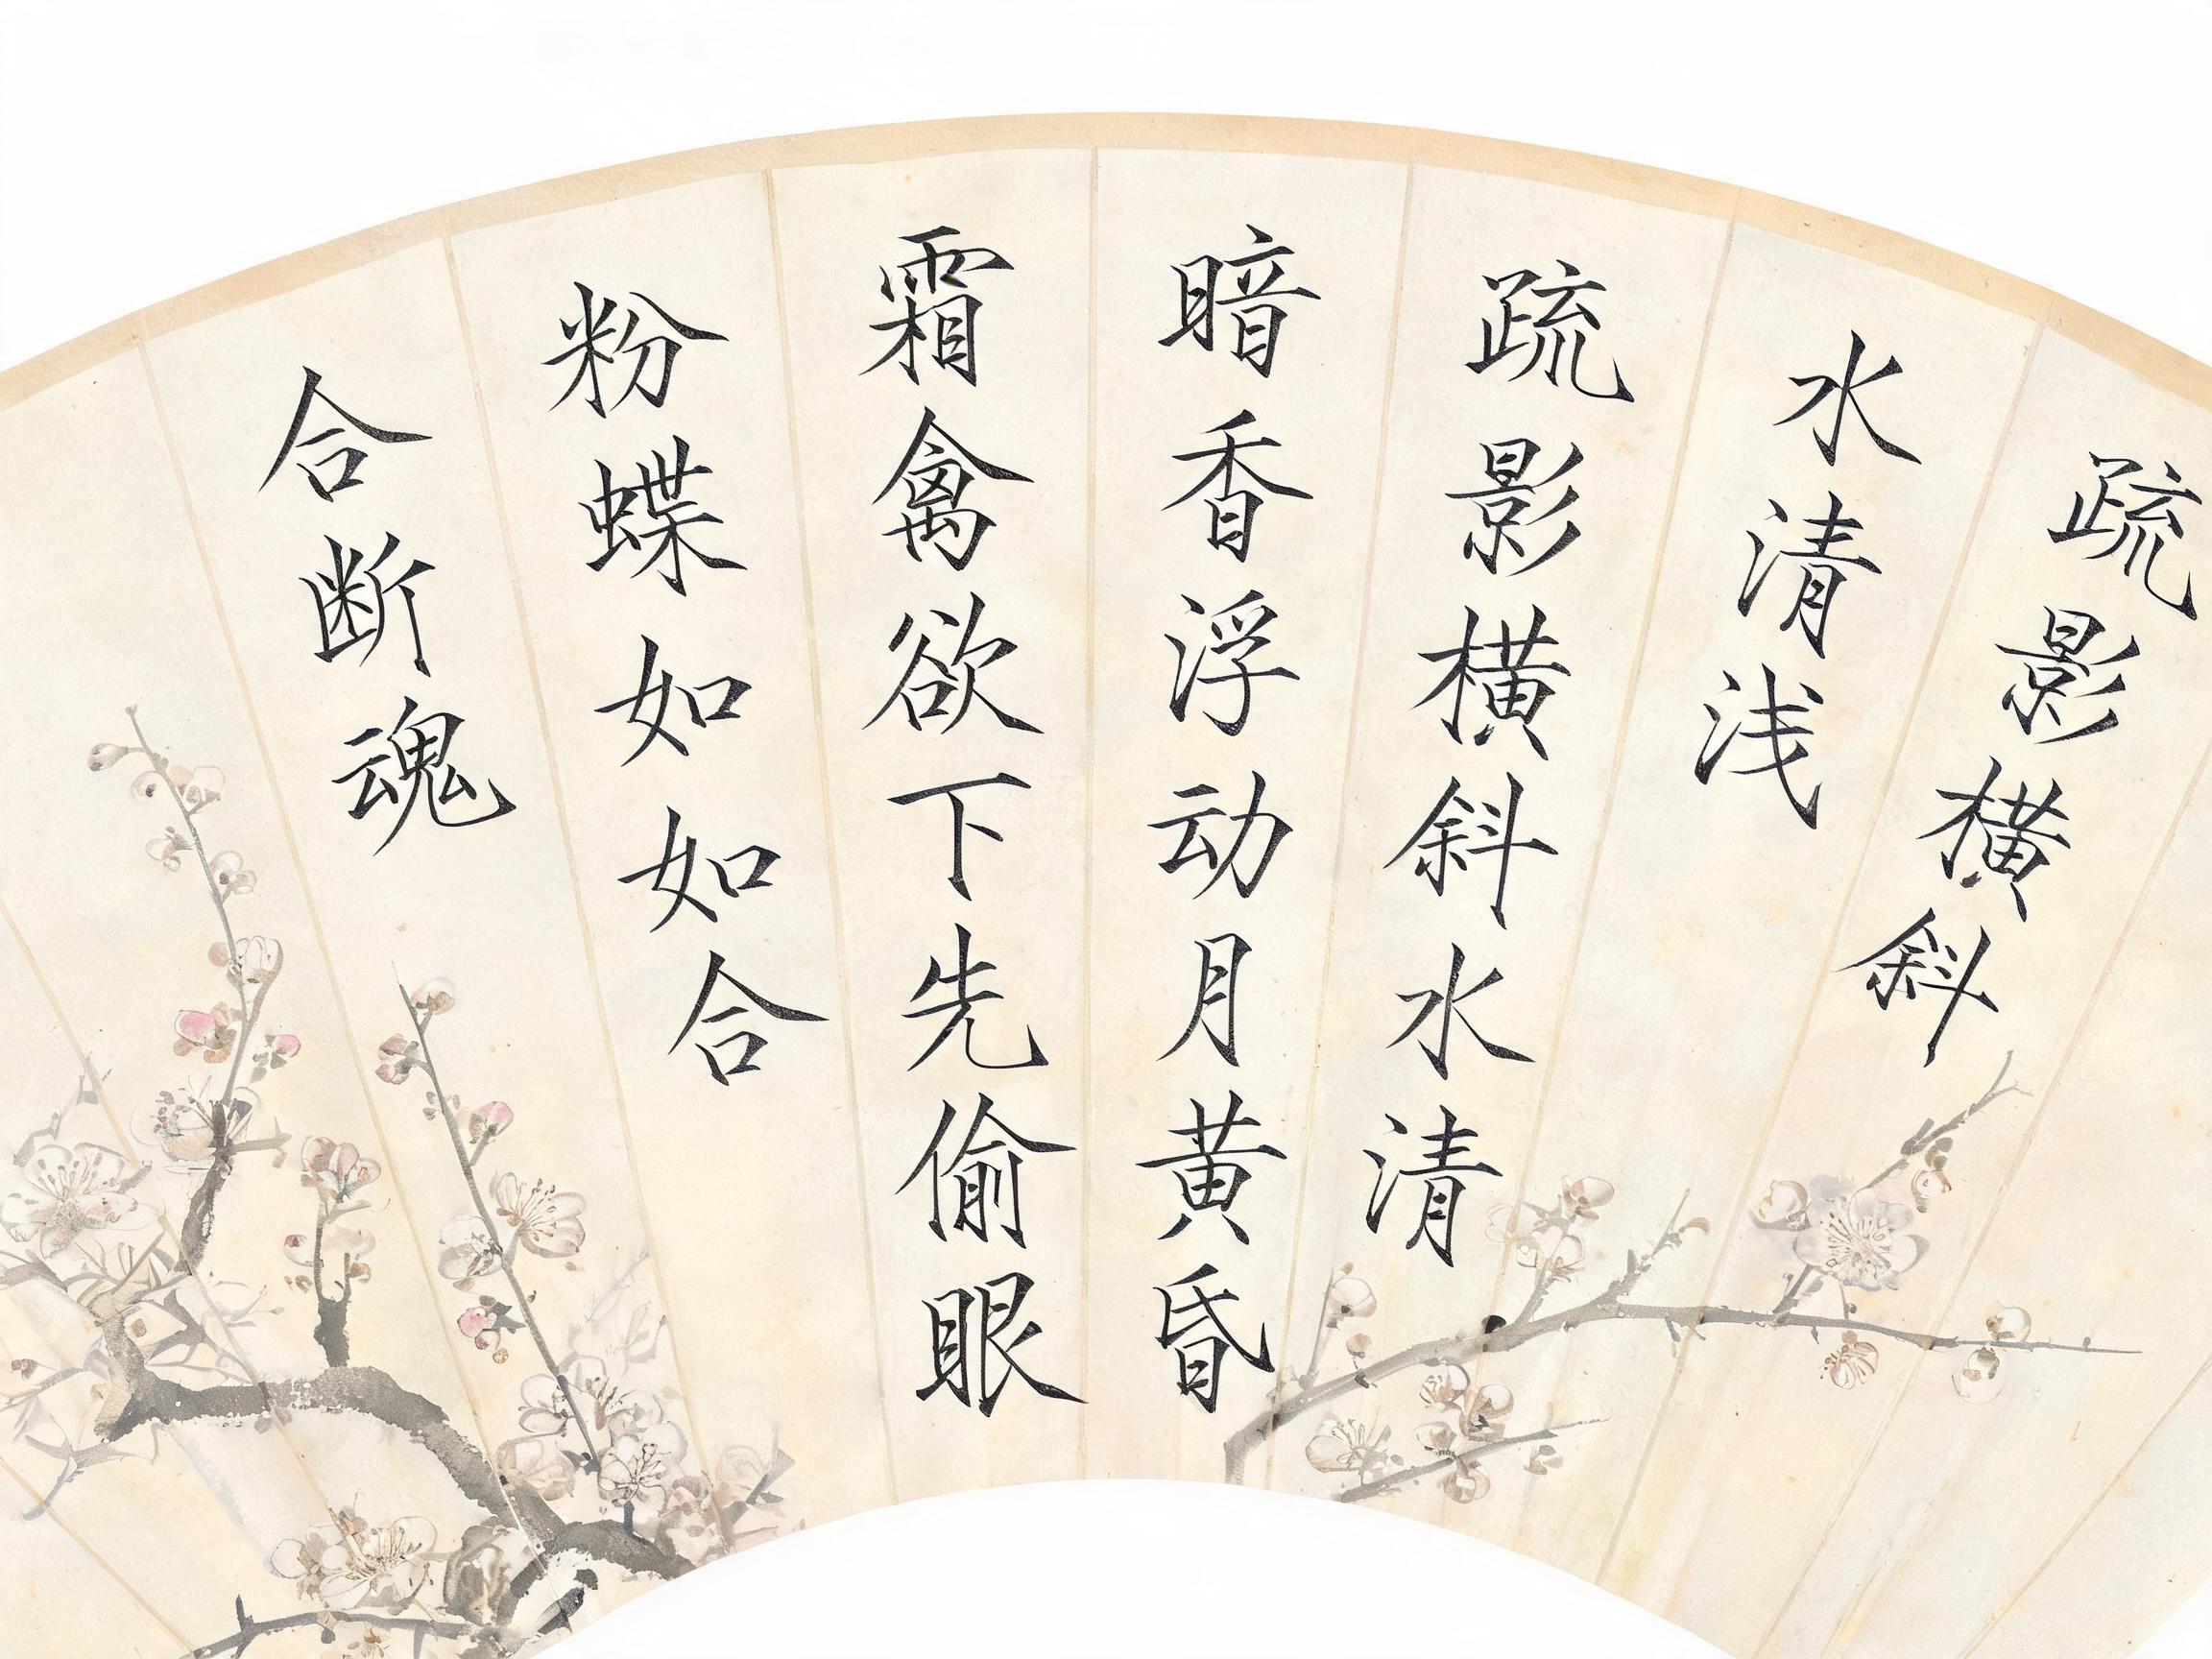 疏影横斜
水清浅
疏影横斜水清
暗香浮动月黄昏
霜禽欲下先偷眼
粉蝶如如合
合断魂